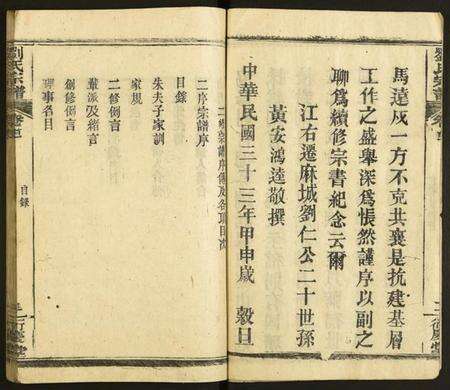 馬遠戍一方不克共襄是抗建基層
工作之盛舉深爲悵然謹序以副之
聊爲續修宗書紀念云爾
江右遷麻城劉仁公二十世孫
黃安鴻逵敬撰
中華民國三十三年甲申歲 穀旦
二修宗譜序傳及各項目次
二序宗譜序
目錄
朱夫子家訓
家規
二修例言
輩派及緒言
創修例言
理事名目
劉氏宗譜 卷首 目錄